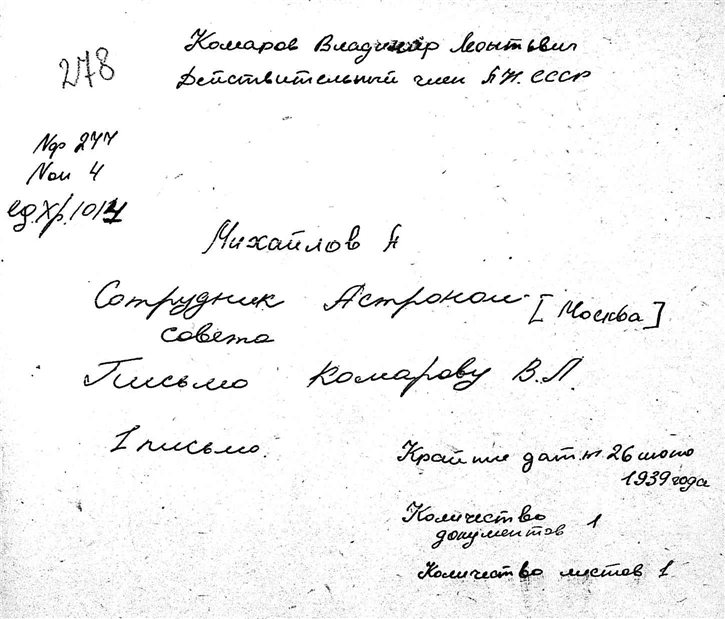 278
Комаров Владимир Леонтьвич
Действительный член АН. СССР
№ф 277
№оп 4
ед.хр. 1014
Михайлов А
Сотрудник Астроном.
совета
[Москва]
Письмо Комарову В.Л.
1 письмо.
Крайние даты 26
1939 года
Количество
документов 1
Количество листов 1